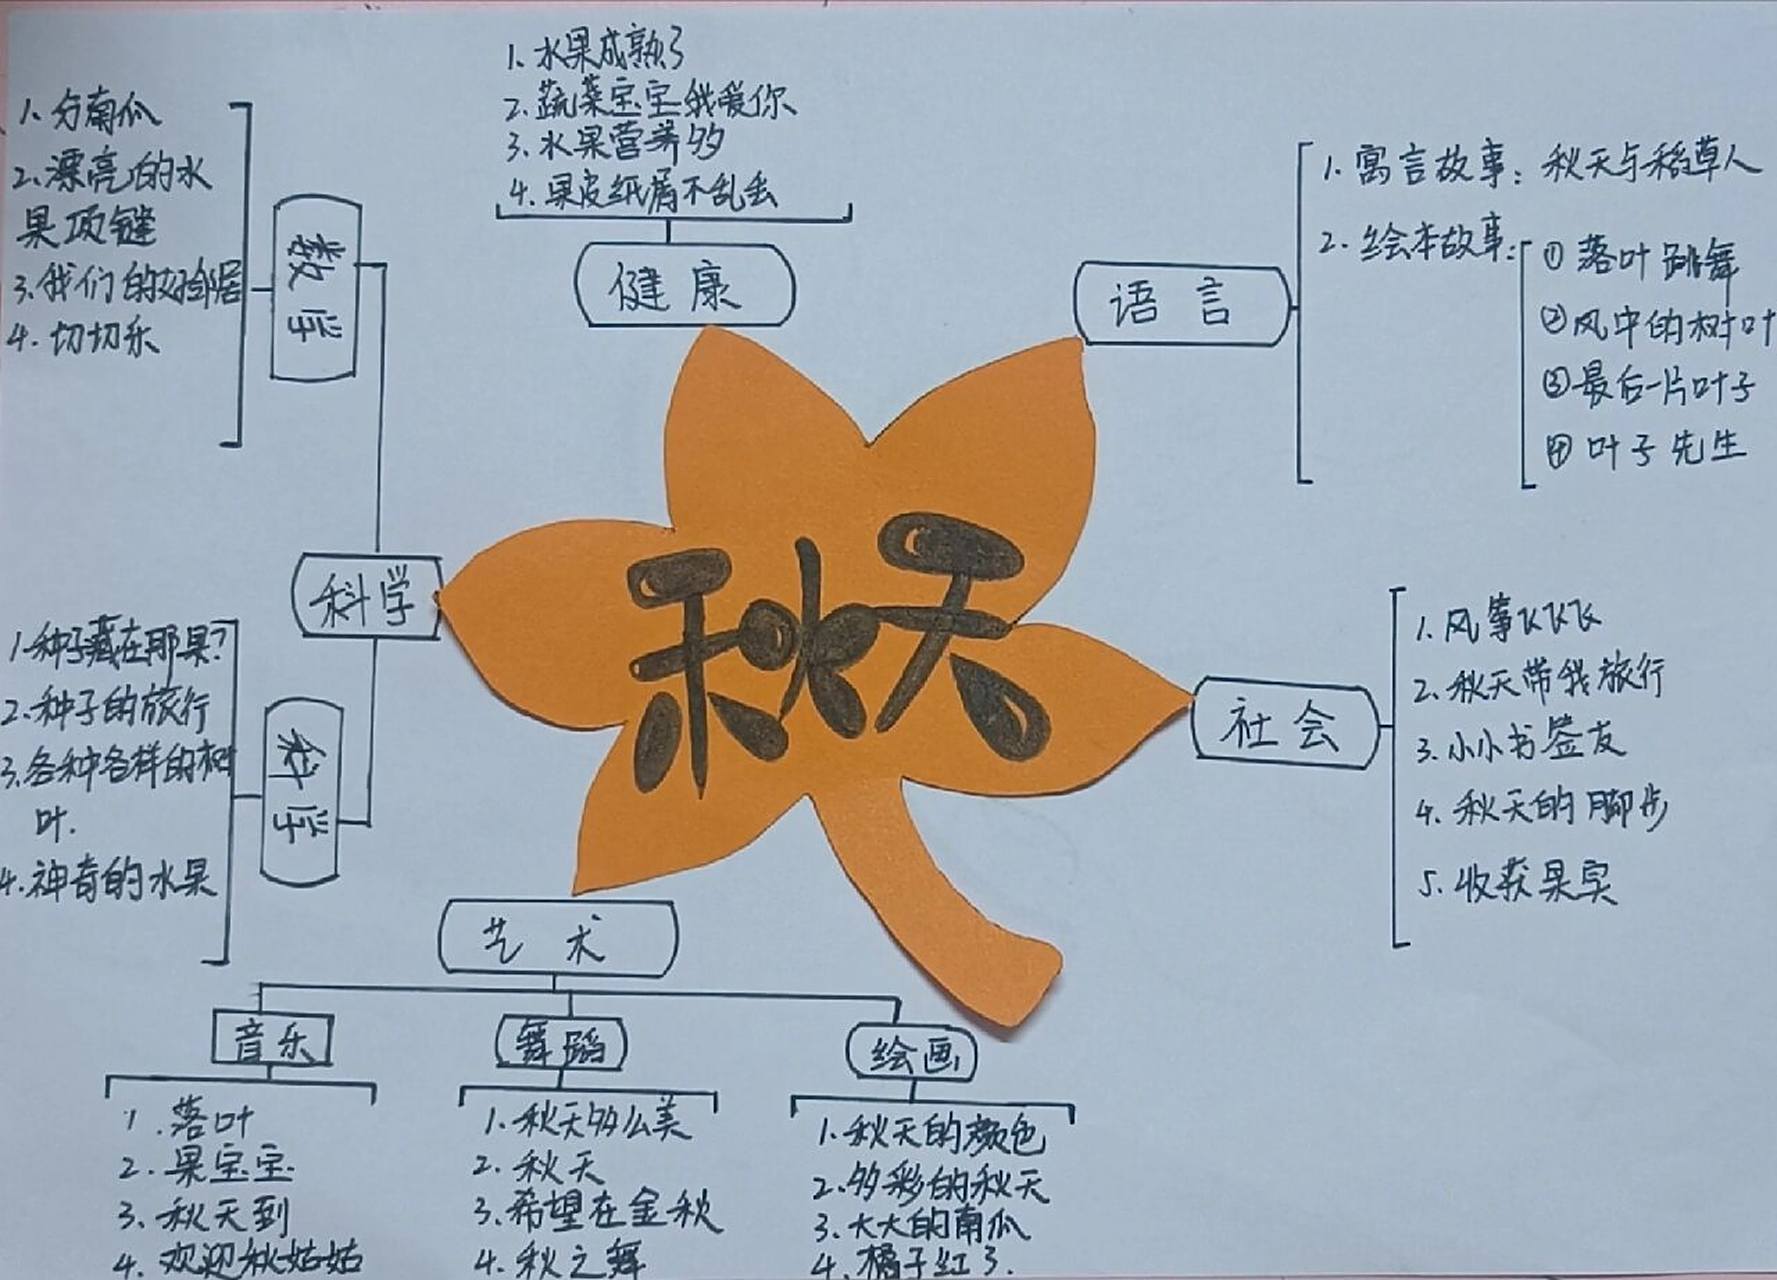 秋天
健康
1. 水果成熟了
2. 蔬菜宝宝我爱你
3. 水果营养多
4. 果皮纸屑不乱丢
语言
1. 寓言故事：秋天与稻草人
2. 绘本故事：
① 落叶跳舞
② 风中的树叶
③ 最后一片叶子
④ 叶子先生
社会
1. 风筝飞飞飞
2. 秋天带我旅行
3. 小小书签友
4. 秋天的脚步
5. 收获果实
科学
数学
1. 分南瓜
2. 漂亮的水
果项链
3. 我们的好邻居
4. 切切乐
科学
1. 种子藏在那果?
2. 种子的旅行
3. 各种各样的树
叶.
4. 神奇的水果
艺术
音乐
1. 落叶
2. 果宝宝
3. 秋天到
4. 欢迎秋姑姑
舞蹈
1. 秋天多么美
2. 秋天
3. 希望在金秋
4. 秋之舞
绘画
1. 秋天的颜色
2. 多彩的秋天
3. 大大的南瓜
4. 橘子红了.